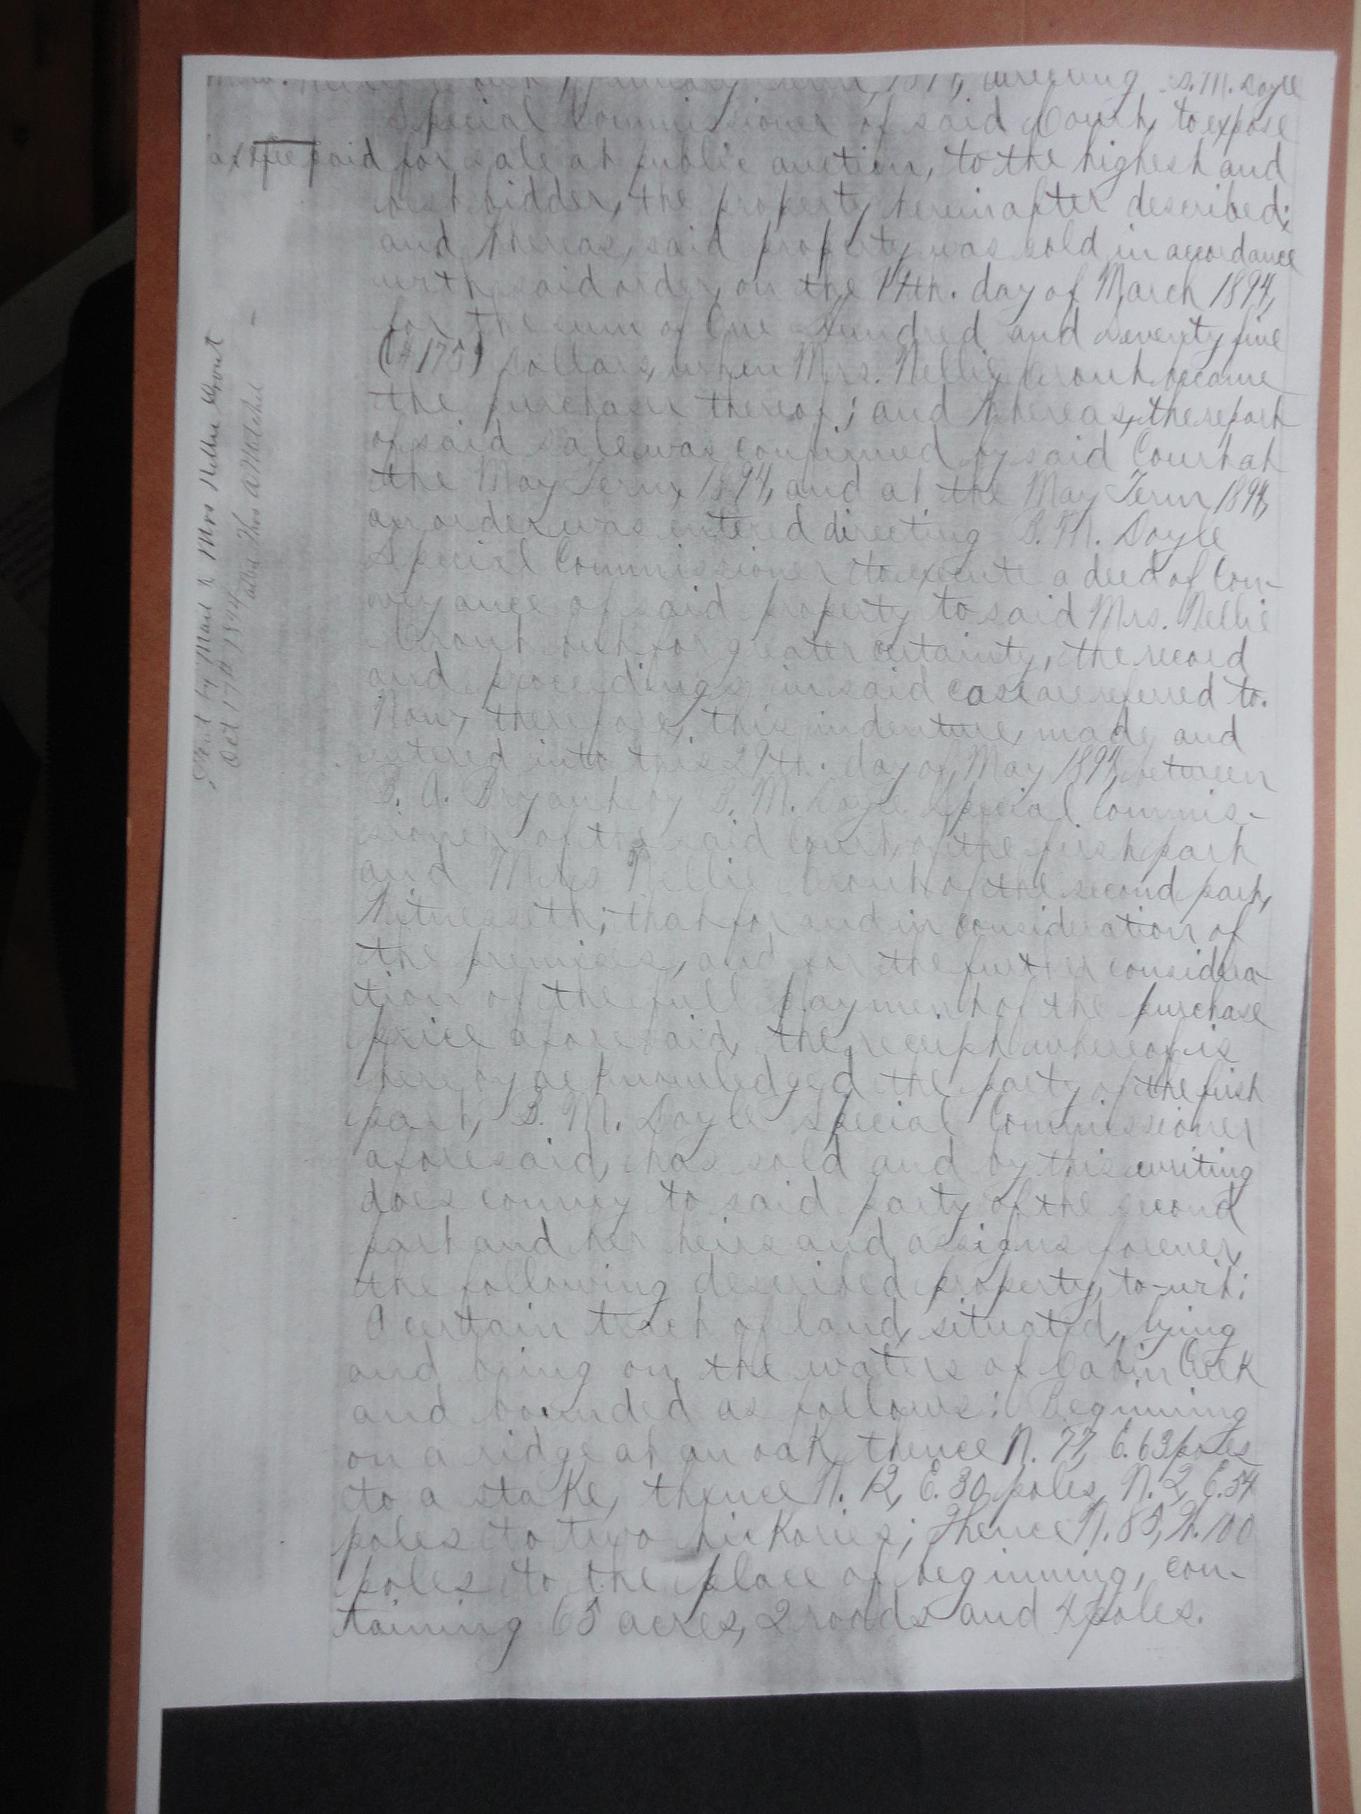 directing S. M. Doyle
Special Commissioner of said Court, to expose
tax fee paid for sale at public auction, to the highest and
best bidder, the property hereinafter described;
and whereas, said property was sold in accordance
with said order, on the 19th. day of March 1894,
for the sum of One Hundred and seventy five
($175) dollars, when Mrs. Nellie became
the purchaser thereof; and whereas, the report
of said sale was confirmed by said Court at
the May Term, 1894, and at the May Term 1894,
an order was entered directing S. M. Doyle
Special Commissioner to execute a deed of Con-
veyance of said property to said Mrs. Nellie
but for greater certainty, the record
and proceedings in said case are referred to.
Now, therefore, this indenture, made and
entered into this 29th. day of May 1894, between
S. A. Bryant by S. M. Doyle Special Commis-
sioner of the said Court, of the first part
and Mrs Nellie of the second part,
Witnesseth; that for and in consideration of
the premises, and for the further considera
tion of the full payment of the purchase
price aforesaid, the receipt whereof is
hereby acknowledged the party of the first
part, S. M. Doyle Special Commissioner
aforesaid, has sold and by this writing
does convey to said party of the second
part and her heirs and assigns forever,
the following described property, to-wit:
A certain tract of land, situated, lying
and being on the waters of Cabin Creek
and bounded as follows: Beginning
on a ridge at an oak, thence N. 77, E. 63 poles
to a stake, thence N. 12, E. 30 poles, N. 2, E. 54
poles to two hickories; Thence N. 85, W. 100
poles to the place of beginning, con-
taining 65 acres, 2 roods and 4 poles.
Sent by Mail to Mrs Nellie
Oct 17th 1894